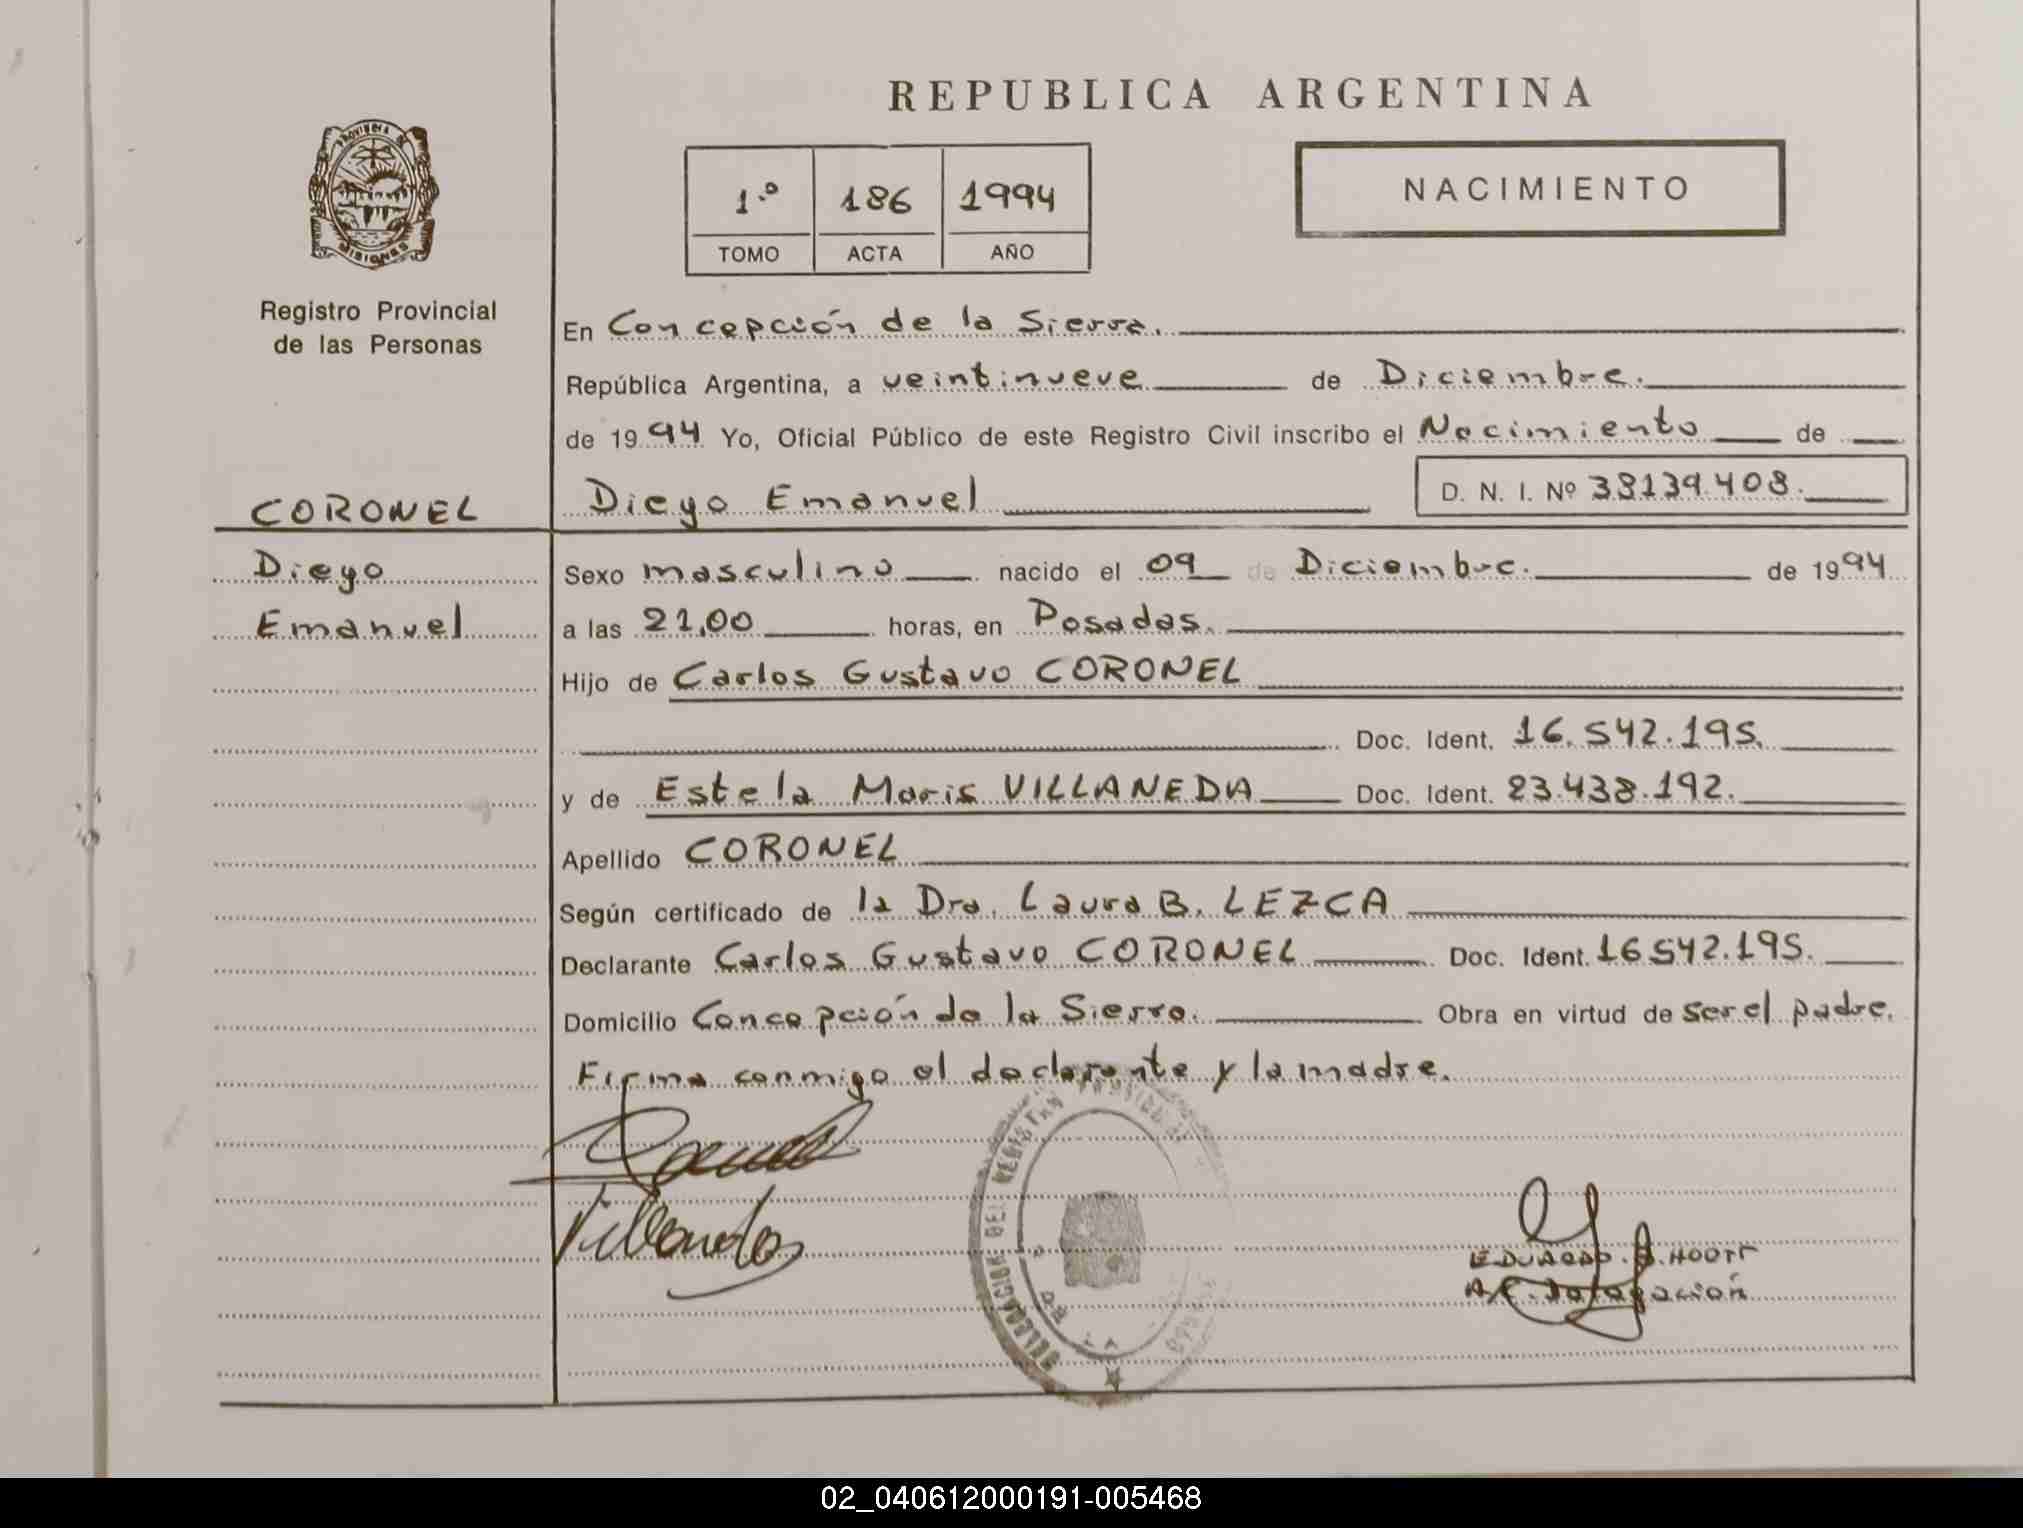 REPUBLICA ARGENTINA
PROVINCIA DE
MISIONES
Registro Provincial
de las Personas
1.º 186 1994
TOMO ACTA AÑO
NACIMIENTO
En Concepción de la Sierra.
República Argentina, a veintinueve de Diciembre.
de 1994 Yo, Oficial Público de este Registro Civil inscribo el Nacimiento de
CORONEL Diego Emanuel D. N. I. Nº 38139.408.
Diego Sexo masculino nacido el 09 de Diciembre. de 1994
Emanuel a las 21,00 horas, en Posadas.
Hijo de Carlos Gustavo CORONEL
Doc. Ident. 16.542.195.
y de Estela Maris VILLANEDA Doc. Ident. 23.438.192.
Apellido CORONEL
Según certificado de la Dra. Laura B. LEZCA
Declarante Carlos Gustavo CORONEL Doc. Ident. 16542.195.
Domicilio Concepción de la Sierra. Obra en virtud de ser el padre.
Firma conmigo el declarante y la madre.
DELEGACION DEL REGISTRO PROVINCIAL
EDUARDO HOOTT
A/C. Delegación
02_040612000191-005468